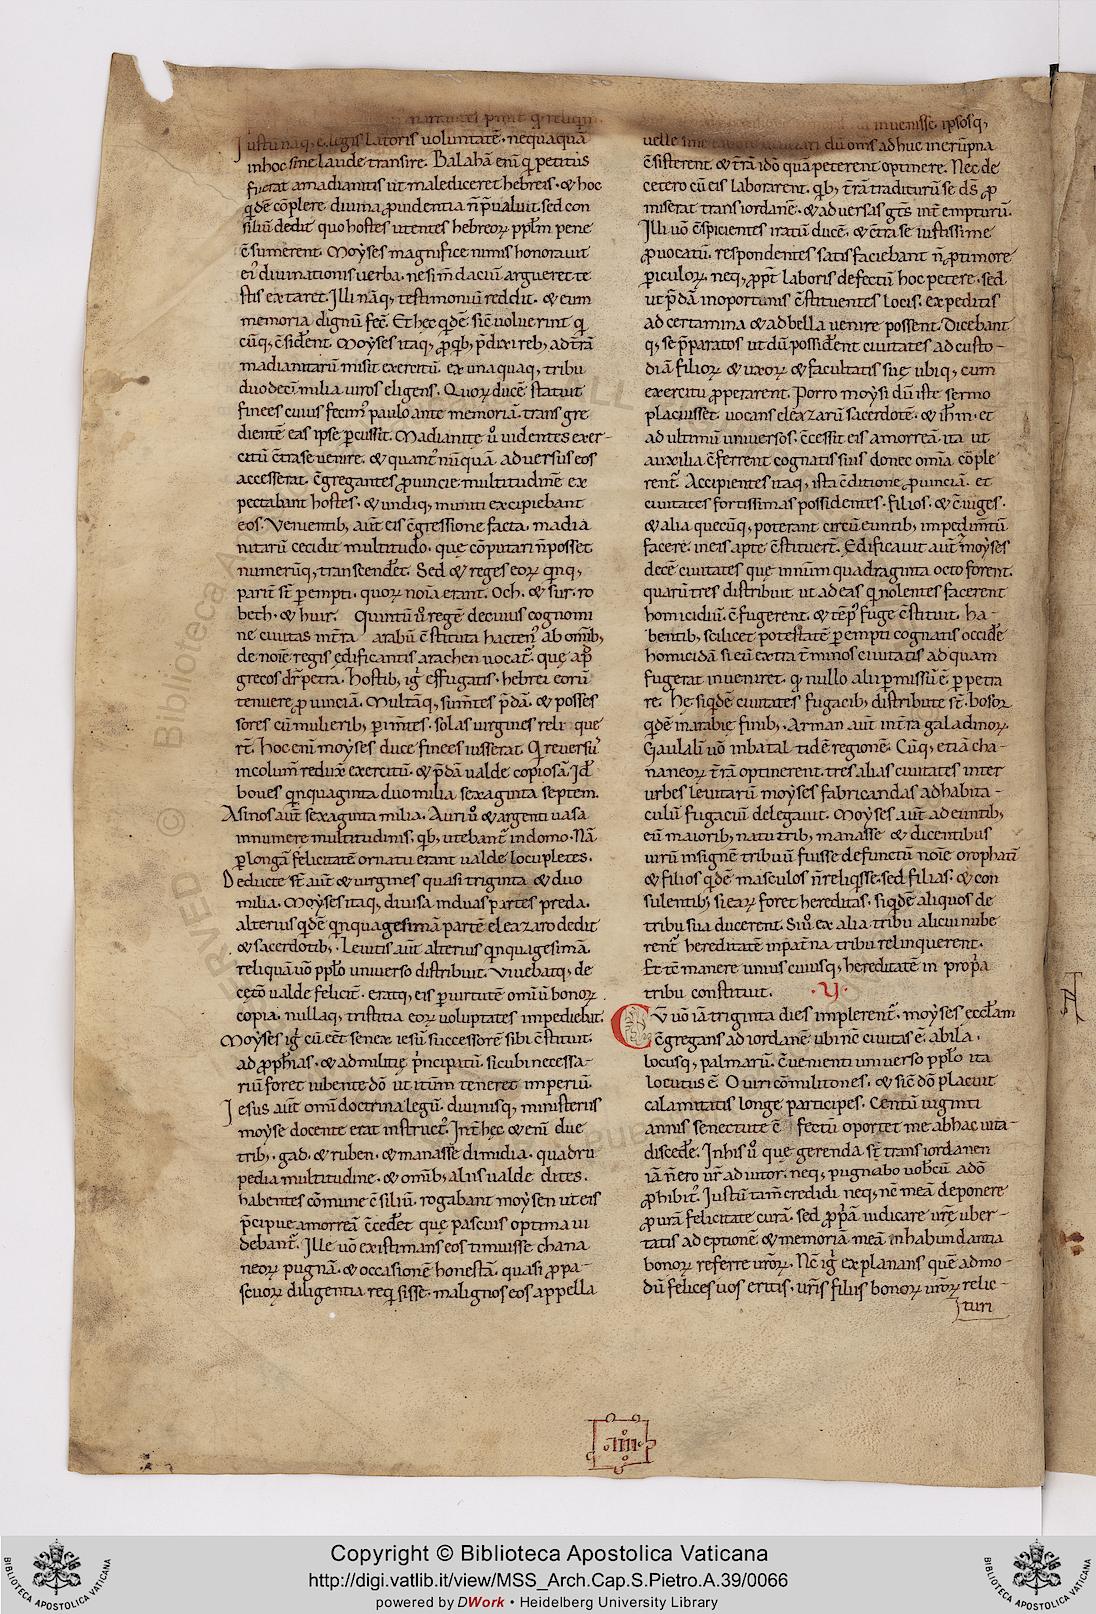 narrantes
Iustū naq, ē, legis Latoris voluntatē · nequaquā
inhoc sine laude transire. Balahā eni q̄ petitus
fuerat amadianitis ut malediceret hebreis · & hoc
q̄dē cōplere diuina ꝓuidentia n̄ p̄ualuit. sed con
siliū dedit quo hostes utentes hebreoꝝ ppl̄m pene
c̄sumerent. Moyses magnifice nimis honorauit
ei᾽ diuinationis uerba · ne sim̄ daciū argueret te
stis extaret. Illi nāq, testimoniū reddit · & eum
memoria dignū fec̄. Et hec q̄dē sic̄ uoluerint q̄
cūq, c̄siderent. Moyses itaq, ꝓ q̄b, p̄dixi reb, ad t̄rā
madianitarū misit exercitū. ex unaquaq, tribu
duodecī milia uiros eligens. Quoꝝ ducē statuit
finees cuius fecim᾽ paulo ante memoriā. trans gre
dientē eas ipse ꝑcussit. Madianite ū uidentes exer-
citū c̄tra se uenire. & quant᾽ nūquā. aduersus eos
accesserat. c̄gregantes ꝓuincie multitudinē ex
pectabant hostes. & undiq, muniti excipiebant
eos. Venientib, aut̄ eis c̄gressione facta. madia
nitarū cecidit multitudo. quę cōputari n̄ posset
numerūq, transcend̄et. Sed & reges eoꝝ q̄nq,
parit̄ st̄ ꝑempti. quoꝝ noīa erant. Och. & sur. ro
beth. & huir. Quintū ū regē de cuius cognomi
ne ciuitas in t̄ra arabū c̄stituta hacten᾽ ab omīb,
de noīe regis ędificantis arachen uocat̄. quę ap̄
grecos dr̄ petra. Hostib, igr̄ effugatis. hebrei eorū
tenuere ꝓuinciā. Multāq, sum̄tes p̄dā. & posses
sores cū mulierib, ꝑim̄tes. solas uirgines reli que
rt̄. Hoc eni moyses duce finees iusserat. Qi reuersi᾽
incolumē reduxᵗ exercitū. & p̄dā ualde copiosā. Id̄
boues q̄nquaginta duo milia sexaginta septem.
Asinos aut̄ sexaginta milia. Auri ū & argenti uasa
innumere multitudinis. q̄b, utebant̄ in domo. Nā
ꝑ longā felicitatē ornatu erant ualde locupletes.
Deducte st̄ aut̄ & uirgines quasi triginta & duo
milia. Moyses itaq, diuisa in duas partes preda.
alterius q̄dē q̄nquagesimā partē eleazaro dedit
& sacerdotib,. Leuitis aut̄ alterius q̄nquagesimā.
reliquā uō ppl̄o uniuerso distribuit. Viuebatq, de
cęto ualde felicit̄. eratq, eis ꝑ uirtutē omīū bonoꝝ
copia. nullaq, tristitia eoꝝ uoluptates impediebat.
Moyses igr̄ cū eēt senex. iesū successorē sibi c̄stituit.
ad ꝓph̄ias. & ad militię p̄ncipatū. sicubi necessa-
riū foret iubente dō ut itūm teneret imperiū.
Iesus aut̄ omī doctrina legū. diuinisq, ministeriis
moyse docente erat instruct᾽. Int̄ hęc & eni due
trib, gad. & ruben. & manasse dimidia. quadru
pedia multitudine. & omīb, aliis ualde dites.
habentes cōmune c̄siliū. rogabant moysen ut eis
p̄cipue amorreā c̄ced̄et quę pascuis optima ui
debant̄. Ille uō existimans eos timuisse chana
neoꝝ pugnā. & occasionē honestā. quasi ꝓ pa-
scuoꝝ diligentia req̄sisse. malignos eos appella
inuenisse, ipsosq,
uelle sine dū oms adhuc in erūpna
c̄sisterent. & t̄rā idō quā peterent optinere. Nec de
cetero cū eis laborarent. q̄b, t̄rā traditurū se ds̄ ꝓ
miserat trans iordanē. & aduersas gtēs int̄empturū.
Illi uō c̄spicientes iratū ducē. & c̄tra se iustissime
ꝓuocatū. respondentes satis faciebant n̄ ꝓ timore
ꝑiculoꝝ. neq, ꝓpt̄ laboris defectū hoc petere. sed
ut p̄dā in oportunis c̄stituentes locis. expeditis
ad certamina & ad bella uenire possent. Dicebant
q, se p̄paratos ut dū possid̄ent ciuitates ad custo-
diā filioꝝ & uxoꝝ & facultatis suę ubiq, cum
exercitu ꝓperarent. Porro moysi dū iste sermo
placuisset. uocans eleazarū sacerdotē. & ih̄m. et
ad ultimū uniuersos. c̄cessit eis amorreā. ita ut
auxilia c̄ferrent cognatis suis donec omīa cōple
rent̄. Accipientes itaq, ista c̄ditione ꝓuinciā. et
ciuitates fortissimas possidentes. filios. & c̄iuges.
& alia quecūq, poterant circū euntib, impedim̄tū
facere. in eis apte c̄stituert̄. Ędificauit aut̄ moyses
decē ciuitates quę in nūm quadraginta octo forent.
quarū tres distribuit ut ad eas q̄ nolentes facerent
homicidiū. c̄fugerent. & tēp᾽ fuge c̄stituit. ha-
bentib, scilicet potestatē ꝑempti cognatis occid̄e
homicidā si eū extra t̄minos ciuitatis ad quam
fugerat inueniret. q̄ nullo alii ꝑmissū ē ꝑpetra
re. Hę siq̄dē ciuitates fugacib, distribute st̄. bosoꝝ
q̄dē in arabię finib,. Arman aut̄ in t̄ra galadinoꝝ.
Gaulalī uō in batal tidē regione. Cūq, etiā cha-
naneoꝝ t̄rā optinerent. tres alias ciuitates inter
urbes leuitarū moyses fabricandas ad habita-
culū fugaciū delegauit. Moyses aut̄ ad euntib,
eū maiorib, natu trib, manasse & dicentibus
uirū insignē tribuū fuisse defunctū noīe orophatī
& filios q̄dē masculos n̄ reliq̄sse. sed filias. & con
sulentib, si earꝝ foret hereditas. siq̄dē aliquos de
tribu sua ducerent. Siū ex alia tribu alicui nube
rent̄ hereditatē in pat̄na tribu relinquerent.
Et tē manere unius cuiusq, hereditatē in prop̄a
tribu constituit. · V ·
Cū uō iā triginta dies implerent̄. moyses ecc̄lam
c̄gregans ad iordanē. ubi nē ciuitas ē. abila.
locusq, palmarū. c̄uenienti uniuerso ppl̄o ita
locutus ē. O uiri cōmilitones. & sic̄ dō placuit
calamitatis longe participes. Centū uiginti
annis senectute c̄ fectū oportet me ab hac uita-
disced̄e. In his ū quę gerenda st̄ trans iordanen
iā n̄ ero ur̄ adiutor. neq, pugnabo uobcū a dō
ꝓhibit᾽. Iustū tam̄ credidi neq, nē meā deponere
ꝓ ur̄a felicitate curā. sed ꝓp̄ā iudicare ur̄e uber-
tatis adeptionē & memoriā meā in habundantia
bonoꝝ referre ur̄oꝝ. Nc̄ igr̄ explanans quē admo-
dū felices uos eritis. ur̄is filiis bonoꝝ ur̄oꝝ relic-
turi
IIII
Copyright © Biblioteca Apostolica Vaticana
http://digi.vatlib.it/view/MSS_Arch.Cap.S.Pietro.A.39/0066
powered by DWork • Heidelberg University Library